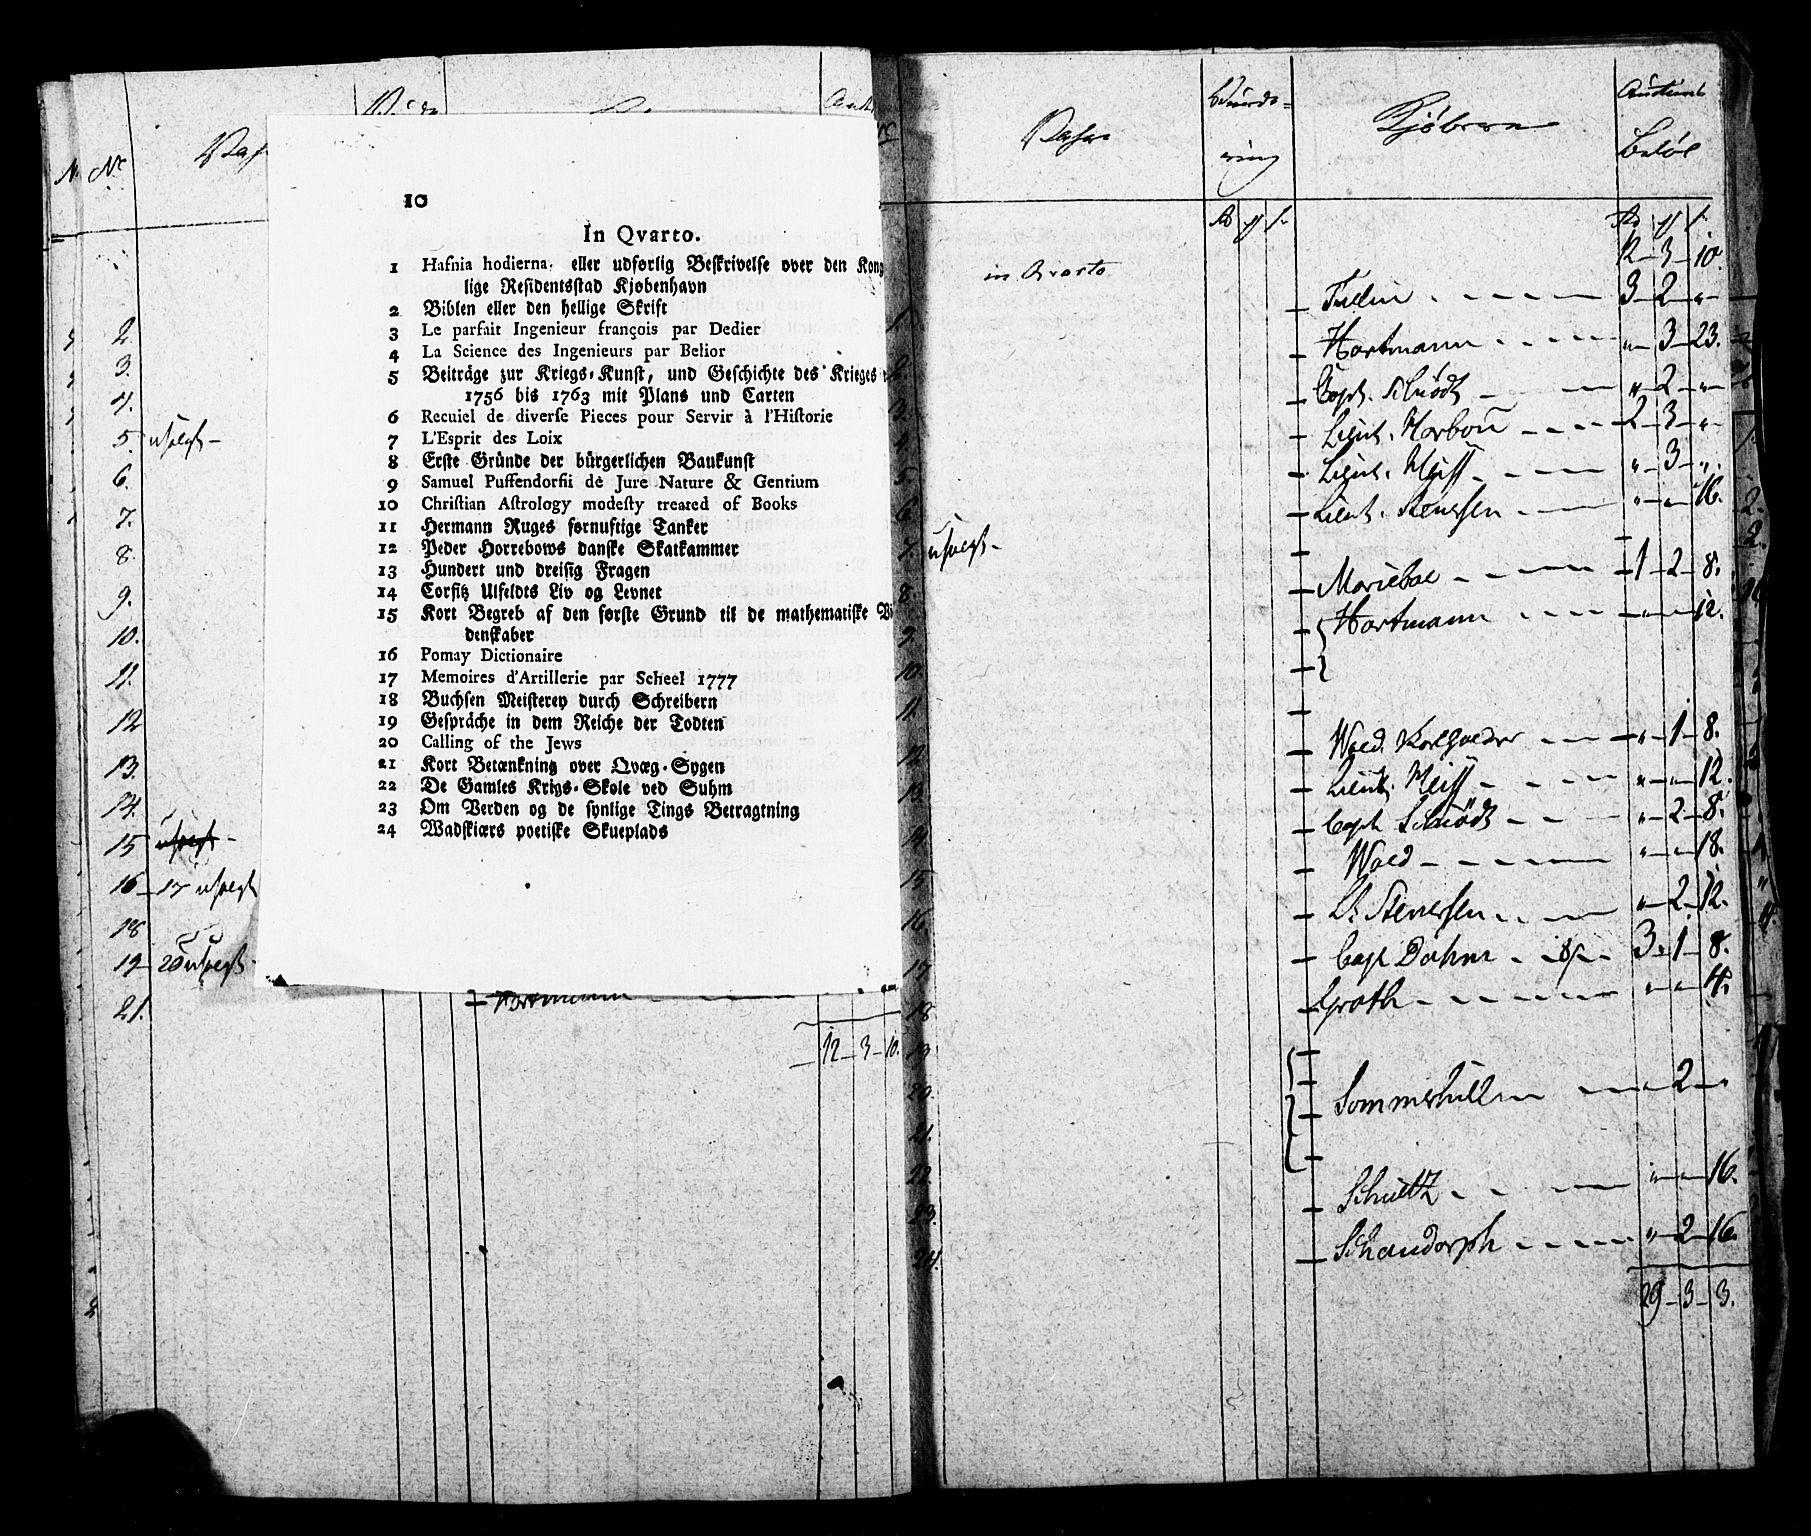 No
2
3.
4.
5. usolgt –
6.
7.
8.
9.
10.
11.
12
13.
14.
15
16 – 17 usolgt
18
19 – 20 usolgt –
21.
Hartmann
12 – 3 – 10.
10
In Qvarto.
1 Hafnia hodierna, eller udførlig Beskrivelse over den Kong
lige Residentsstad Kjøbenhavn
2 Biblen eller den hellige Skrift
3 Le parfait Ingenieur françois par Dedier
4 La Science des Ingenieurs par Belior
5 Beiträge zur Kriegs-Kunst, und Geschichte des Krieges
1756 bis 1763 mit Plans und Carten
6 Recuiel de diverse Pieces pour Servir à l'Historie
7 L'Esprit des Loix
8 Erste Gründe der bürgerlichen Baukunst
9 Samuel Puffendorfii de Jure Nature & Gentium
10 Christian Astrology modesty treared of Books
11 Hermann Ruges fornuftige Tanker
12 Peder Horrebows danske Skatkammer
13 Hundert und dreisig Fragen
14 Corfitz Ulfeldts Liv og Levnet
15 Kort Begreb af den første Grund til de mathematiske Vi
denskaber
16 Pomay Dictionaire
17 Memoires d'Artillerie par Scheel 1777
18 Buchsen Meisterey durch Schreibern
19 Gespräche in dem Reiche der Todten
20 Calling of the Jews
21 Kort Betænkning over Qvæg-Sygen
22 De Gamles Krigs-Skole ved Suhm
23 Om Verden og de synlige Tings Betragtning
24 Wadskiærs poetiske Skueplads
Vurde-
ring
Kjøberne
Auctions
Beløb
12 – 3 – 10.
in Qvarto
1. Tullin 3 – 2 – „ –
2. Hartmann „ – 3 – 23.
3. Capt. Schiødt „ – 2 – „ –
4. Lieut. Harbou 2 – 3 – „ –
5. Lieut. Meiss „ – 3 – „ .
6. Lieut. Stenersen „ – „ – 16.
7. usolgt –
8. Mariboe 1 – 2 – 8.
9. Hartmann „ – „ – 12.
10.
11.
12 Woed „ – 1 – 8.
13. Lieut. Meiss „ – „ – 12.
14 Capt. Schiødt „ – 2 – 8.
15 Woed „ – „ – 18.
16. Lt Stenersen „ – 2 – 12.
17 Capt Dahm 3 – 1 – 8.
18 Groth „ – „ – 4.
19.
20. Sommerhielm „ – 2 – „
21.
22.
23. Schultz „ – „ – 16.
24. Schandorph „ – 2 – 16.
29 – 3 – 3.